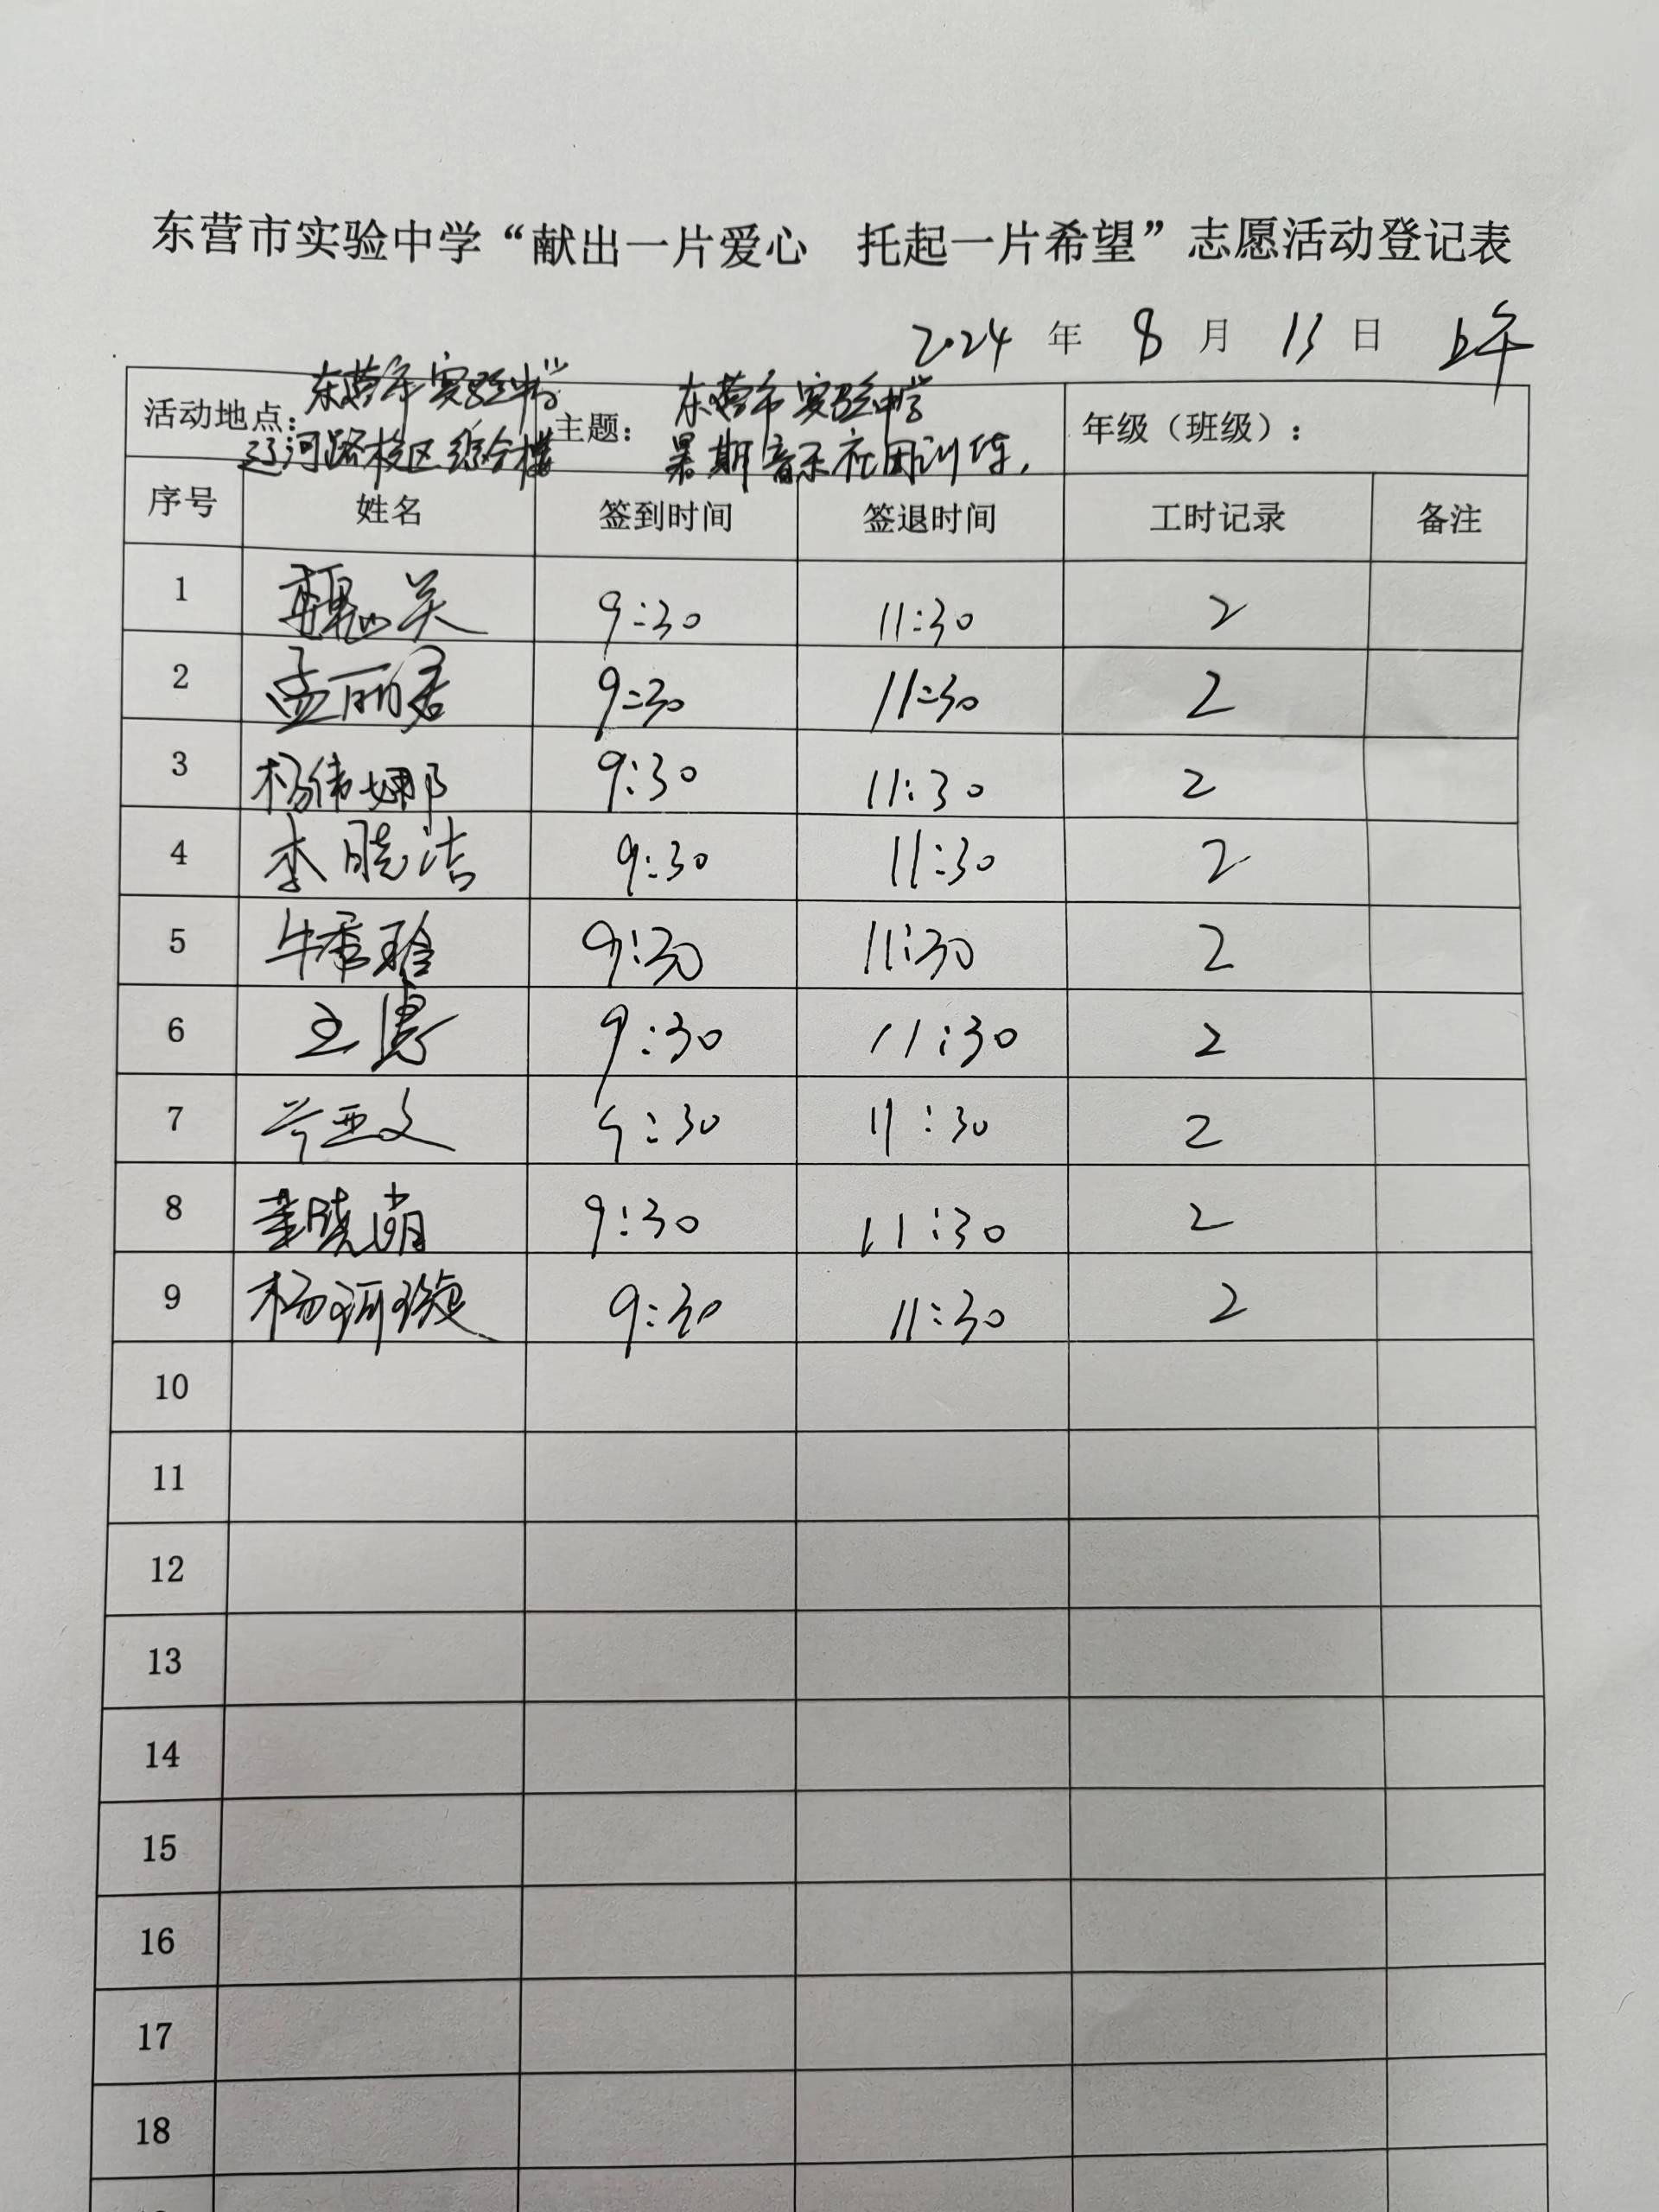 东营市实验中学“献出一片爱心 托起一片希望”志愿活动登记表
2024 年 8 月 13 日 上午
活动地点：东营市实验中学 主题：东营市实验中学 年级（班级）：
辽河路校区综合楼 暑期音乐社团训练，
序号 姓名 签到时间 签退时间 工时记录 备注
1 9:30 11:30 2
2 孟丽君 9:30 11:30 2
3 杨伟娜 9:30 11:30 2
4 李晓洁 9:30 11:30 2
5 牛秀玲 9:30 11:30 2
6 9:30 11:30 2
7 兰亚文 9:30 11:30 2
8 董晓萌 9:30 11:30 2
9 杨珂璇 9:30 11:30 2
10
11
12
13
14
15
16
17
18